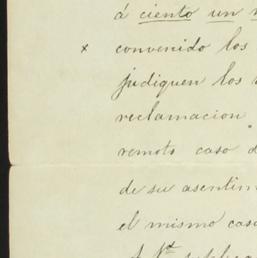 á ciento un
x convenido los
judiquen los
reclamacion
remoto caso d
de su asentim
el mismo caso